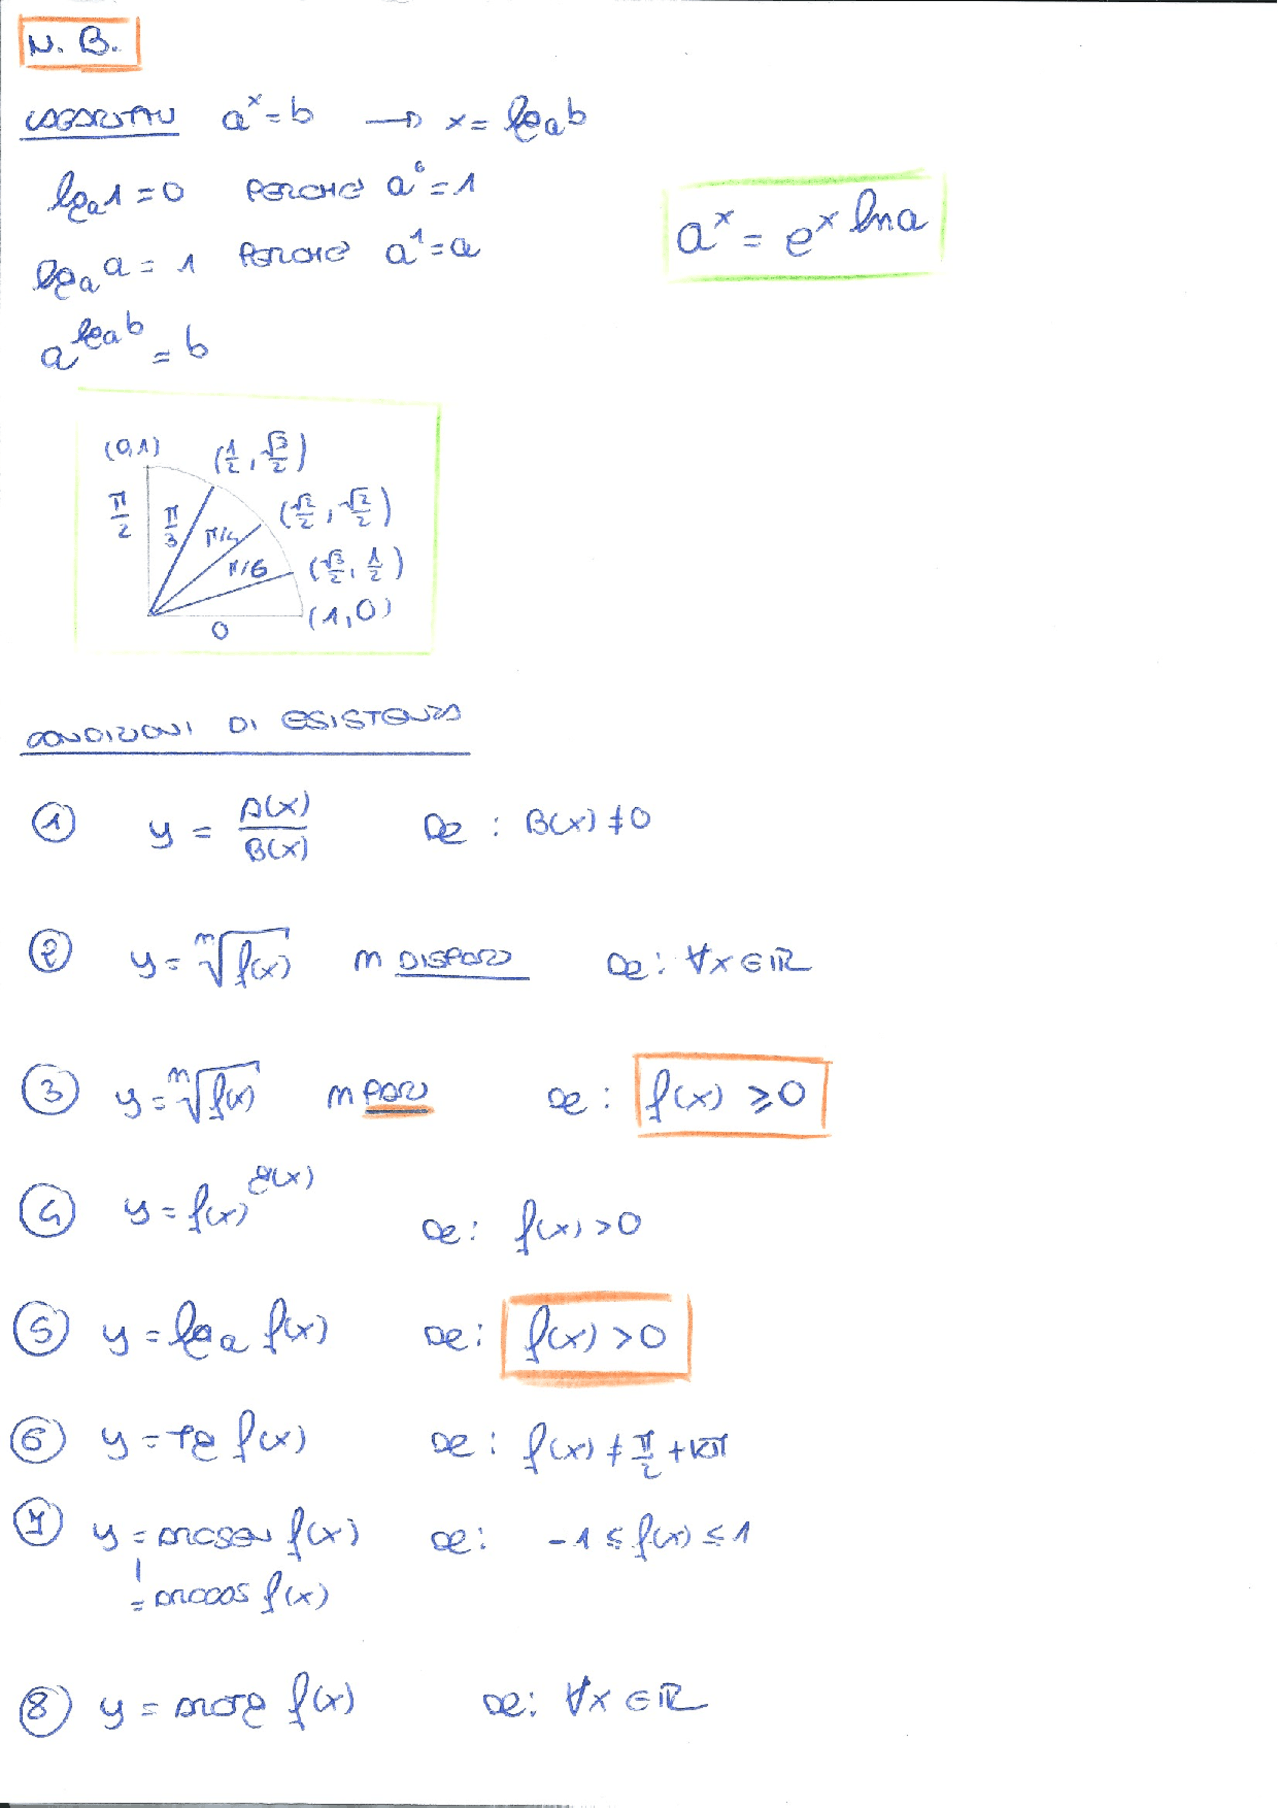 N.B.
LOGARITMI a^x = b → x = log_a b
log_a 1 = 0 PERCHÈ a^0 = 1
a^x = e^{x ln a}
log_a a = 1 PERCHÈ a^1 = a
a^{log_a b} = b
(0,1) (1/2, √3/2)
π/2 π/3 π/4 (√2/2, √2/2)
π/6 (√3/2, 1/2)
0 (1,0)
CONDIZIONI DI ESISTENZA
① y = A(x)/B(x) De : B(x) ≠ 0
② y = ⁿ√f(x) n DISPARI De : ∀x ∈ ℝ
③ y = ⁿ√f(x) n PARI De : f(x) ⩾ 0
④ y = f(x)^{g(x)} De : f(x) > 0
⑤ y = log_a f(x) De : f(x) > 0
⑥ y = tg f(x) De : f(x) ≠ π/2 + kπ
⑦ y = arcsen f(x) De : -1 ≤ f(x) ≤ 1
= arccos f(x)
⑧ y = arctg f(x) De : ∀x ∈ ℝ